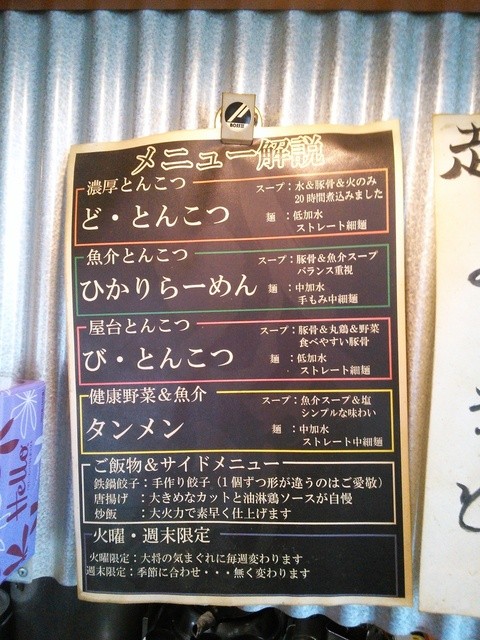 メニュー解説
濃厚とんこつ
ど・とんこつ
スープ：水＆豚骨＆火のみ
20時間煮込みました
麺：低加水
ストレート細麺
魚介とんこつ
ひかりらーめん
スープ：豚骨＆魚介スープ
バランス重視
麺：中加水
手もみ中細麺
屋台とんこつ
び・とんこつ
スープ：豚骨＆丸鶏＆野菜
食べやすい豚骨
麺：低加水
ストレート細麺
健康野菜＆魚介
タンメン
スープ：魚介スープ＆塩
シンプルな味わい
麺：中加水
ストレート中細麺
ご飯物＆サイドメニュー
鉄鍋餃子：手作り餃子（1個ずつ形が違うのはご愛敬）
唐揚げ：大きめなカットと油淋鶏ソースが自慢
炒飯：大火力で素早く仕上げます
火曜・週末限定
火曜限定：大将の気まぐれに毎週変わります
週末限定：季節に合わせ・・・無く変わります
Hello